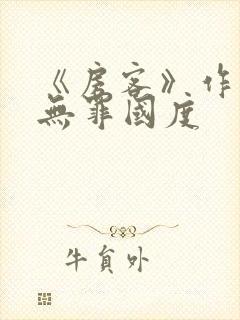 《房客》作
無罪國度
牛負外